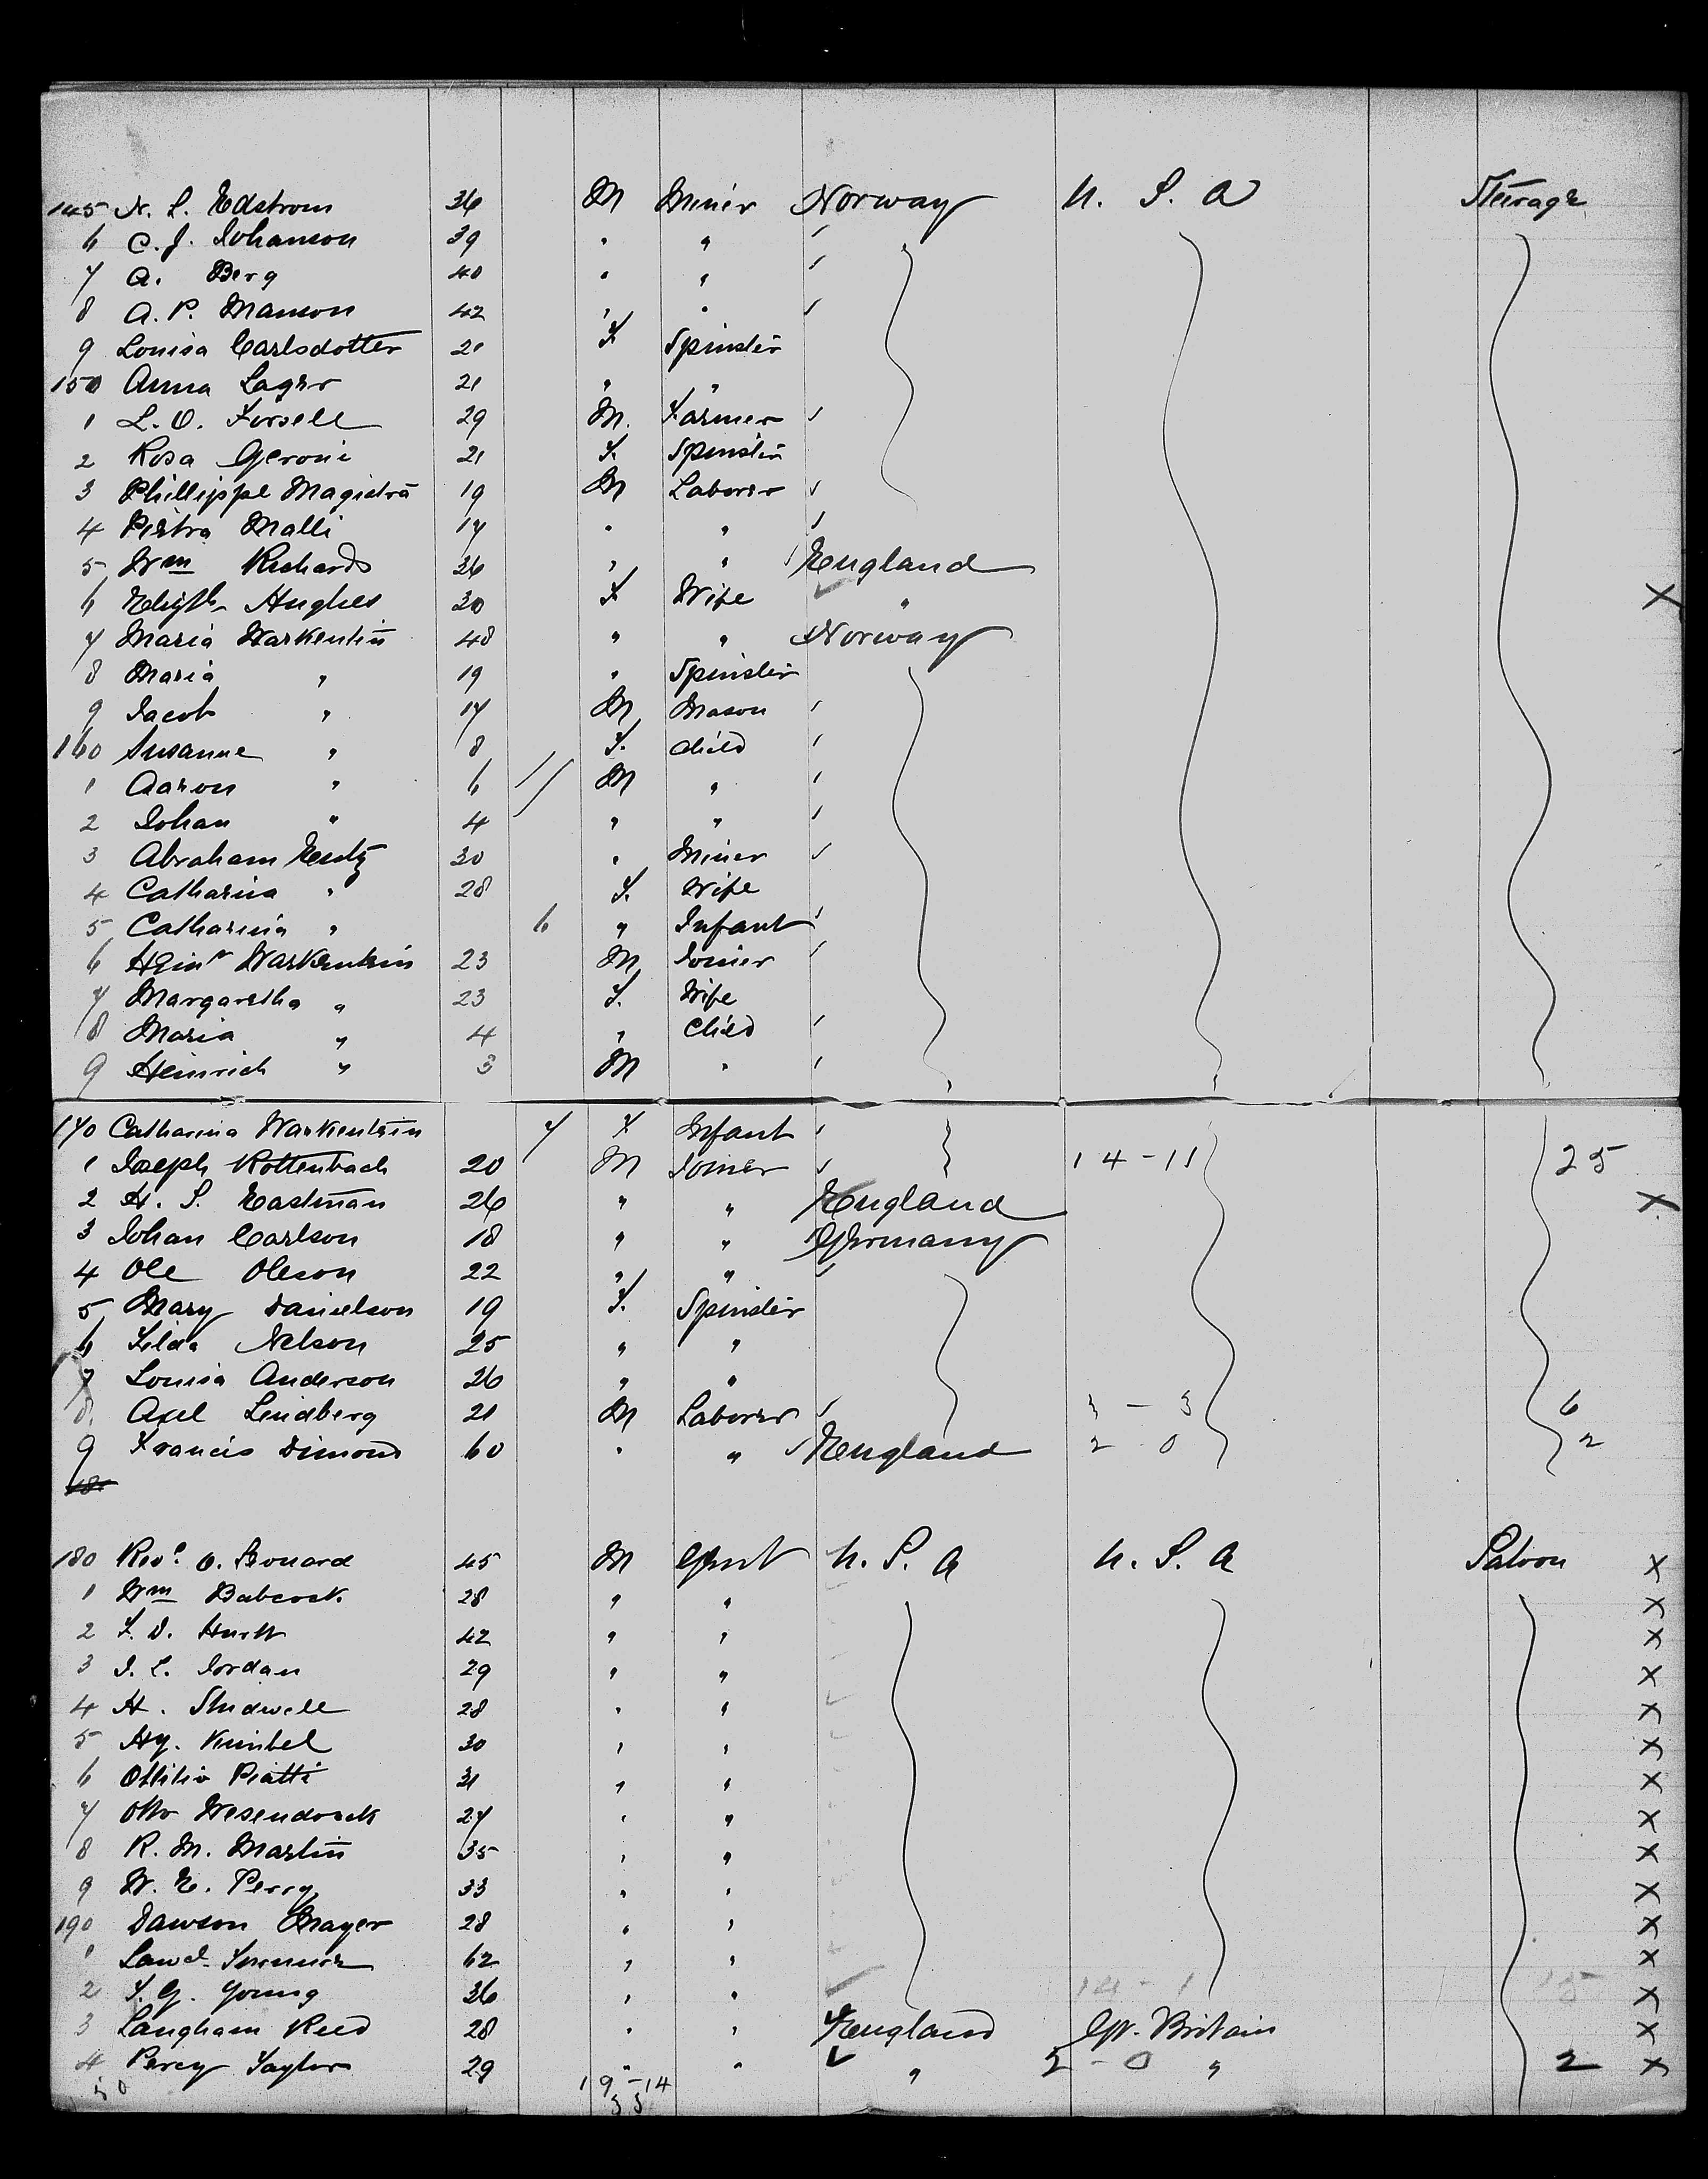 145 N. L. Edstrom 36 M Miner Norway U. S. A Steerage
6 C. J. Johanson 39 " "
7 A. Berg 40 " "
8 A. P. Manson 42 " "
9 Louisa Carlsdotter 21 F Spinster
150 Anna Lager 21 " "
1 L. O. Forsell 29 M. Farmer
2 Rosa Geroni 21 F. Spinster
3 Phillippe 19 M Laborer
4 Pietra Malli 17 " "
5 Wm Richards 36 " " England
6 Hughes 30 F Wife "
7 Maria Warkentin 48 " " Norway
8 Maria " 19 " Spinster
9 Jacob " 17 M Mason
160 Susanne " 8 F. Child
1 Aaron " 6 M "
2 Johan " 4 " "
3 Abraham 30 " Miner
4 Catharina " 28 F. Wife
5 Catharina " 6 " Infant
6 Heinr Warkentin 23 M Joiner
7 Margaretha " 23 F. Wife
8 Maria " 4 " Child
9 Heinrich " 3 M "
170 Catharina Warkentin 7 F Infant
1 Joseph Rottenbach 20 M Joiner 14-11 25
2 H. S. Eastman 26 " " England X
3 Johan Carlson 18 " " Germany
4 Ole Oleson 22 " "
5 Mary Danielson 19 F. Spinster
6 Nelson 25 " "
7 Louisa Anderson 26 " "
8. Axel Lindberg 21 M Laborer 3 - 3 6
9 Francis Dimond 60 " " England 2 0 2
180 Revd. O. Leonard 45 M Gent U. S. A U. S. A Saloon X
1 Wm Babcock 28 " " X
2 F. D. 42 " " X
3 J. C. Jordan 29 " " X
4 H. Studwell 28 " " X
5 Hy. Kimbel 30 " " X
6 Piatti 31 " " X
7 Otto Wesendonck 27 " " X
8 R. M. Martin 35 " " X
9 W. E. Perry 33 " " X
190 Dawson Mayer 28 " " X
1 62 " " X
2 F. G. Young 36 " " 14 - 1 15 X
3 Langham Reed 28 " " England Gt. Britain X
4 Percy Taylor 29 " " " 2 - 0 " 2 X
50 19-14